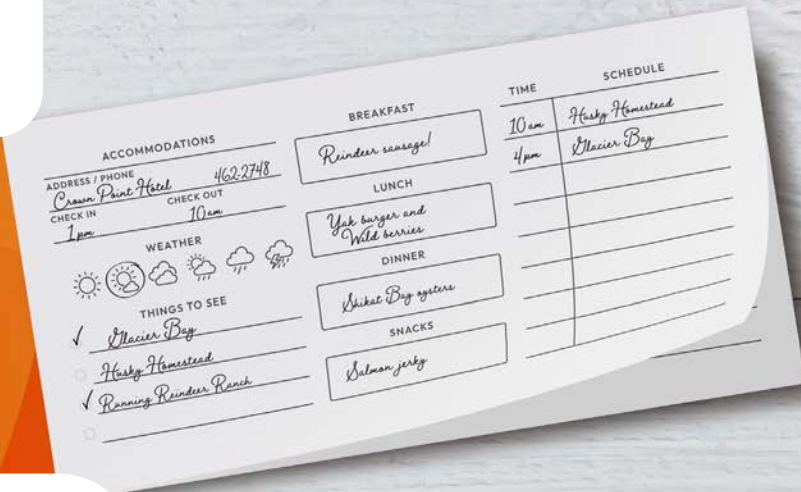 ACCOMMODATIONS
ADDRESS / PHONE
Crown Point Hotel 462-2748
CHECK IN CHECK OUT
1 pm 10 am
WEATHER
THINGS TO SEE
✓ Glacier Bay
Husky Homestead
✓ Running Reindeer Ranch
BREAKFAST
Reindeer sausage!
LUNCH
Yak burger and
Wild berries
DINNER
Shikat Bay oysters
SNACKS
Salmon jerky
TIME SCHEDULE
10 am Husky Homestead
4 pm Glacier Bay